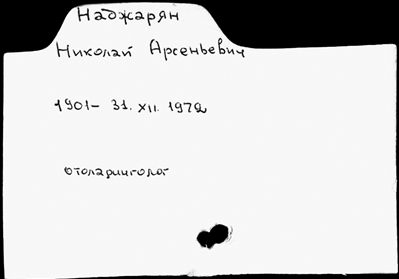 Наджарян
Николай Арсеньевич
1901- 31. XII. 1972
отоларинголог